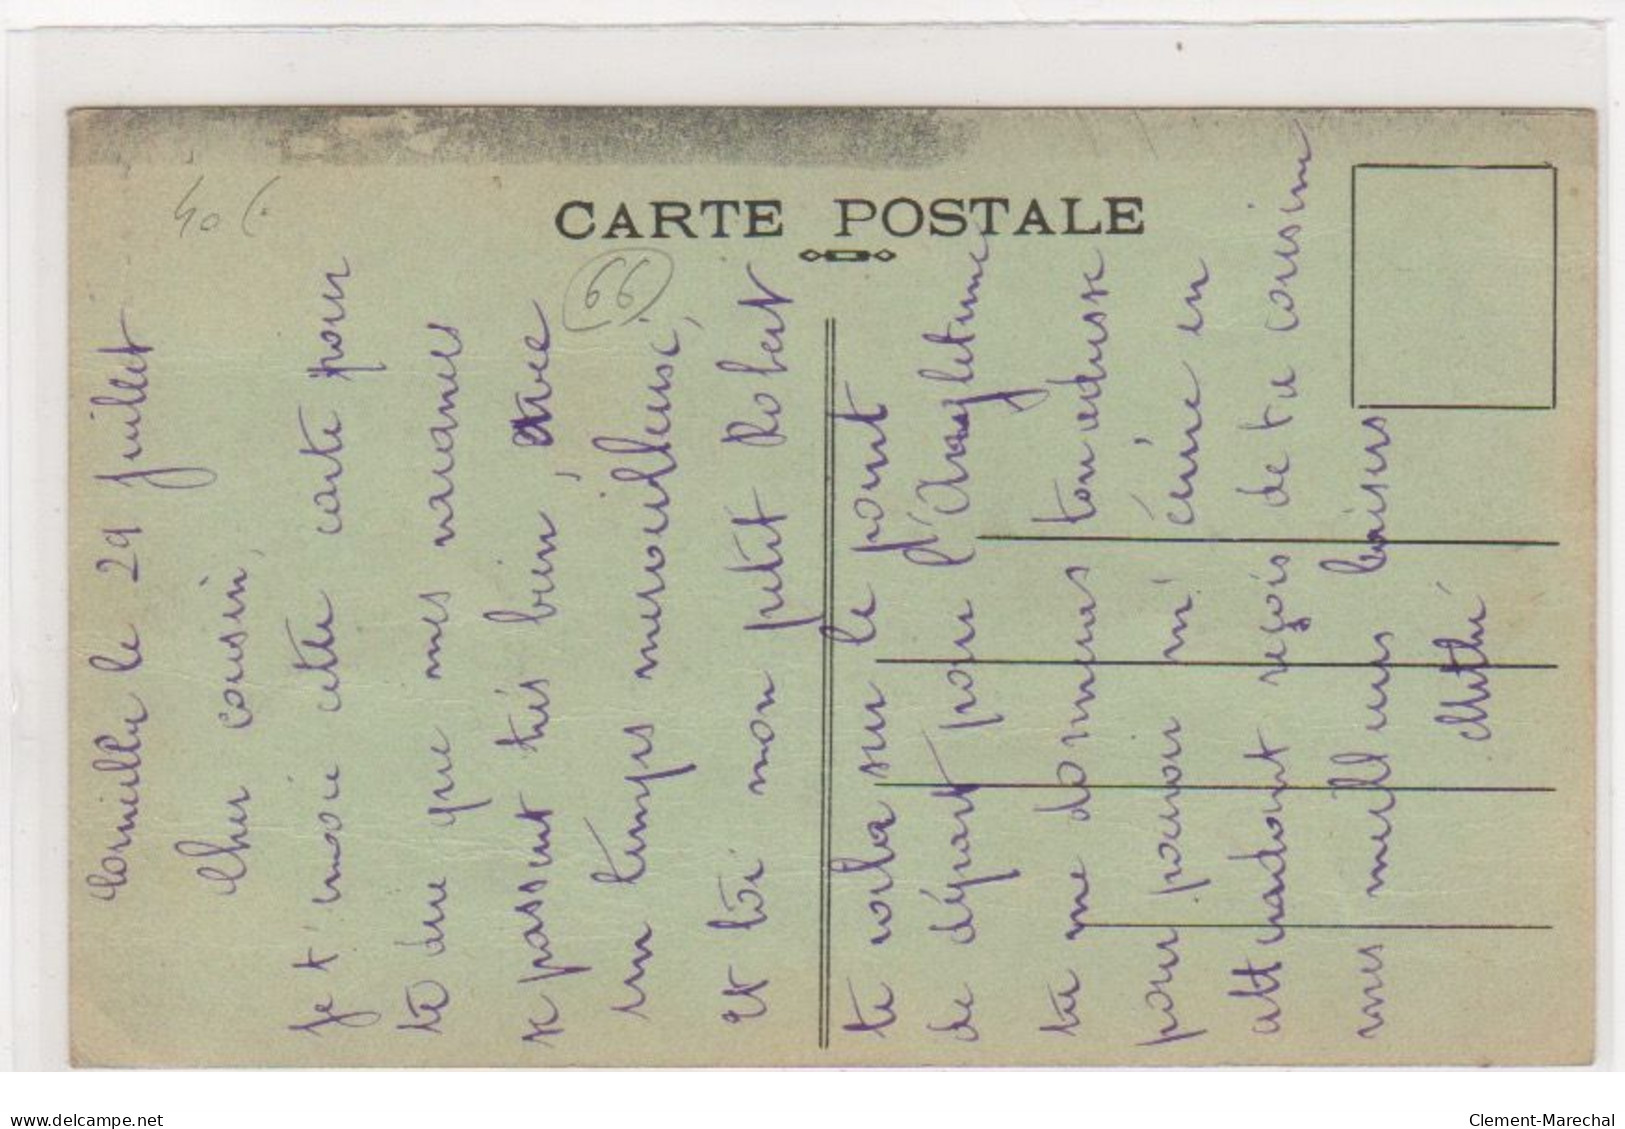 CARTE POSTALE
40 €
66
Corneilla le 29 juillet
Cher cousin,
je t'envoie cette carte pour
te dire que mes vacances
se passent très bien, avec
un temps merveilleux,
et toi mon petit Robert
te voila sur le point
de départ pour l'Angleterre
tu me donneras ton adresse
pour pouvoir m'écrire en
attendant reçois de ta cousine
mes meilleurs baisers
delcampe.net
Clement-Marechal